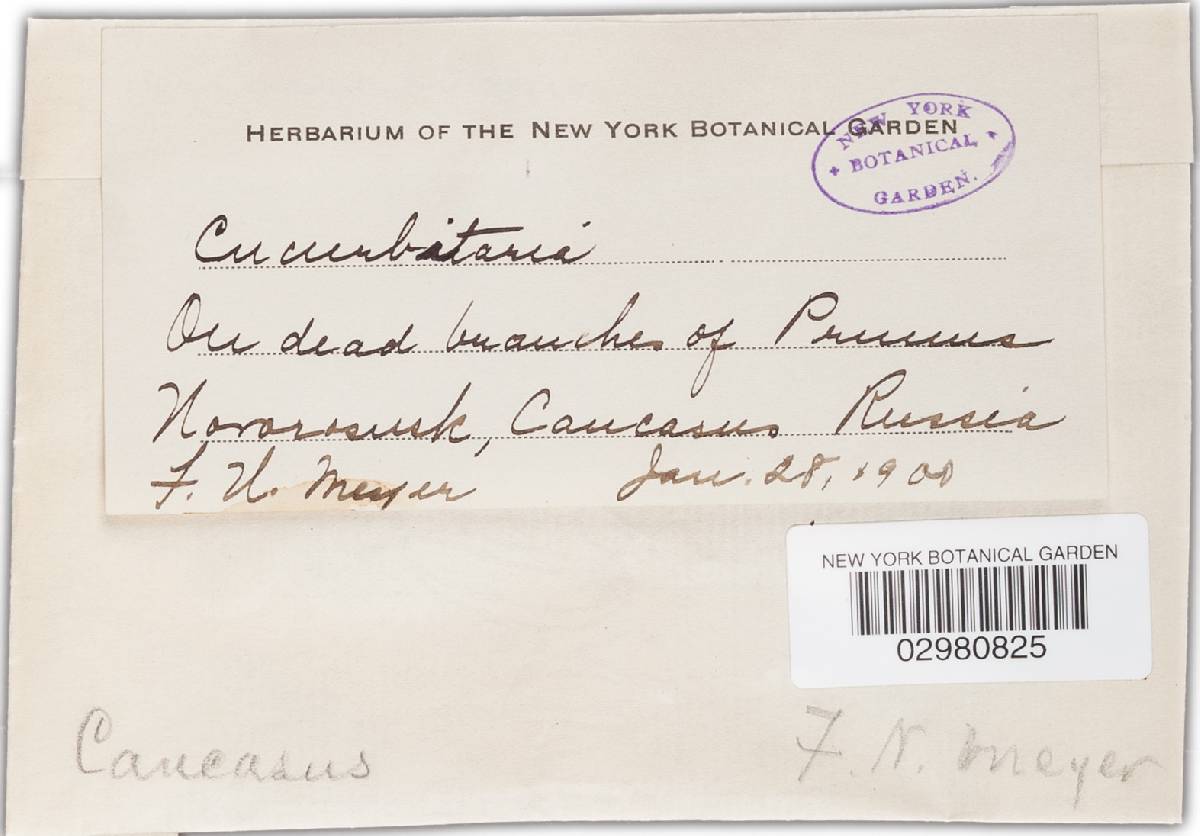 HERBARIUM OF THE NEW YORK BOTANICAL GARDEN
NEW YORK
BOTANICAL
GARDEN.
Cucurbitaria
On dead branches of Prunus
Novorossusk, Caucasus Russia
F. N. Meyer Jan. 28, 1900
NEW YORK BOTANICAL GARDEN
02980825
Caucasus
F. N. Meyer